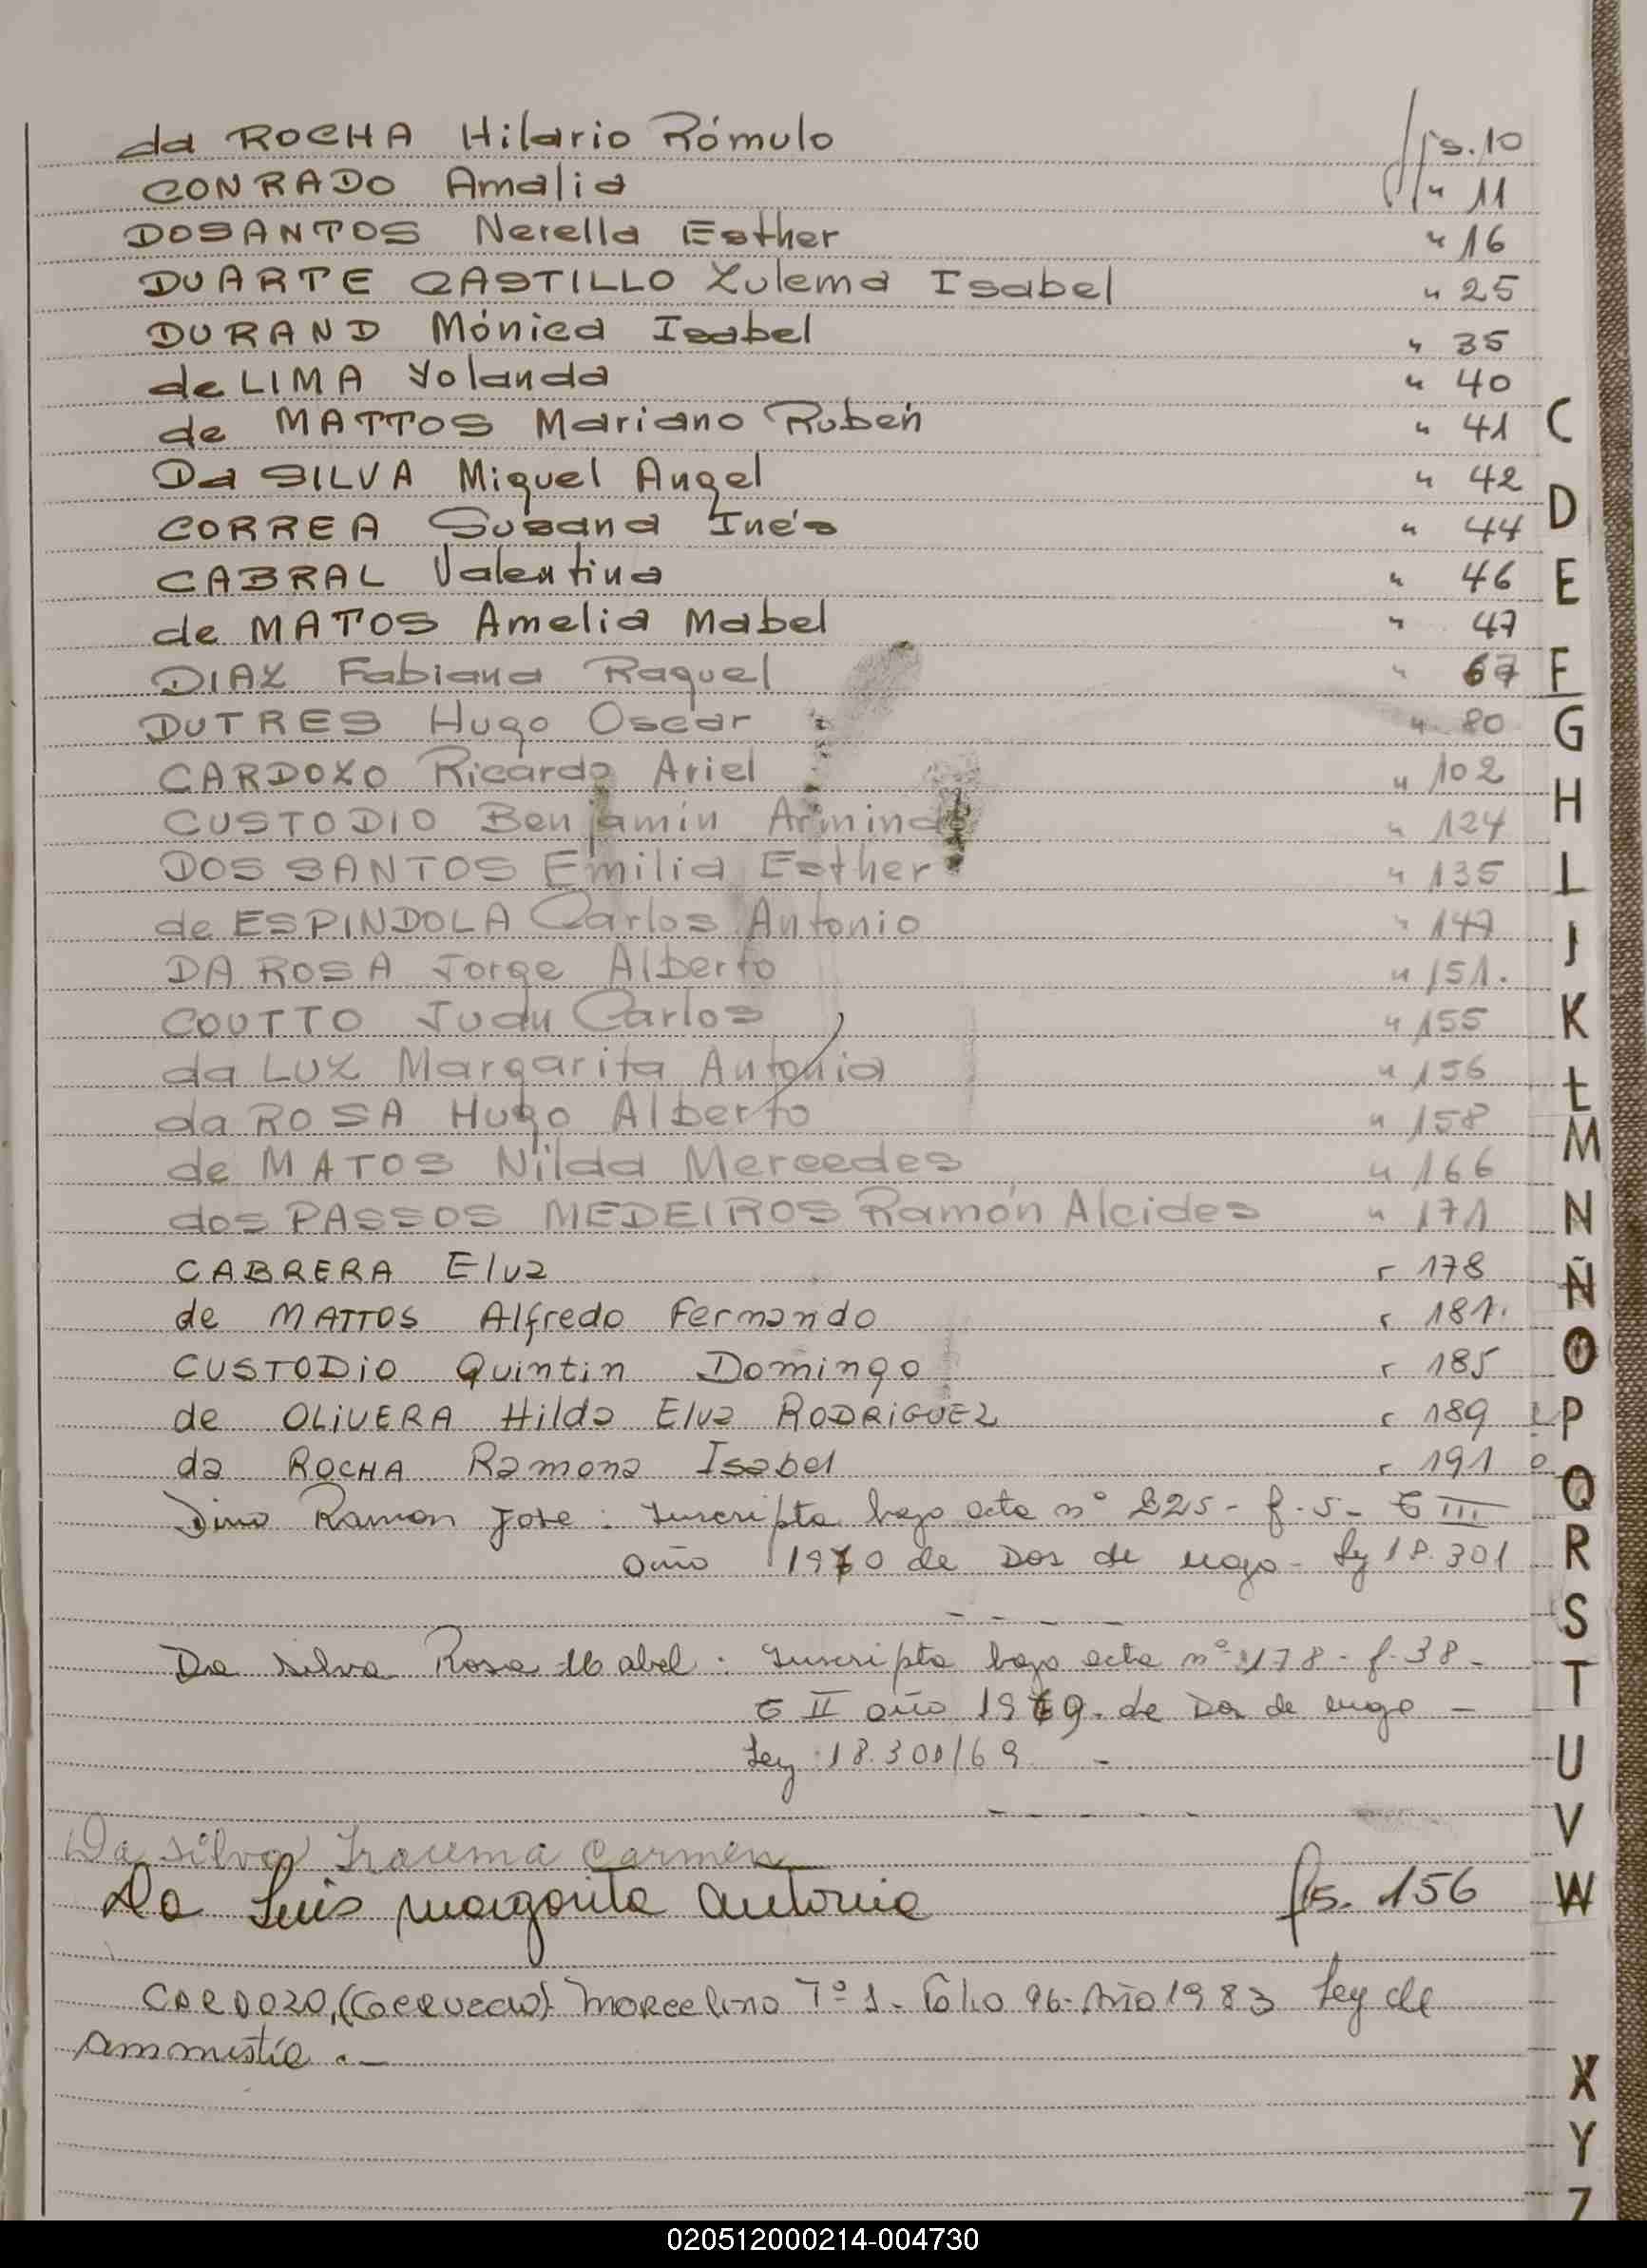 da ROCHA Hilario Rómulo fs. 10
CONRADO Amalia " 11
DOSANTOS Nerella Esther " 16
DUARTE CASTILLO Zulema Isabel " 25
DURAND Mónica Isabel " 35
de LIMA Yolanda " 40
de MATTOS Mariano Rubén " 41
Da SILVA Miguel Angel " 42
CORREA Susana Inés " 44
CABRAL Valentina " 46
de MATOS Amelia Mabel " 47
DIAZ Fabiana Raquel " 67
DUTRES Hugo Oscar " 80
CARDOZO Ricardo Ariel " 102
CUSTODIO Benjamín Armindo " 124
DOS SANTOS Emilia Esther " 135
de ESPINDOLA Carlos Antonio " 147
DA ROSA Jorge Alberto " 151.
COUTTO Juan Carlos " 155
da LUZ Margarita Antonia " 156
da ROSA Hugo Alberto " 158
de MATOS Nilda Mercedes " 166
dos PASSOS MEDEIROS Ramón Alcides " 171
CABRERA Elva " 178
de MATTOS Alfredo Fernando " 181.
CUSTODIO Quintin Domingo " 185
de OLIVERA Hilda Elva RODRIGUEZ " 189
da ROCHA Ramona Isabel " 191
Ramon Jose : Inscripta bajo acta nº 225 - f. 5 - T III
año 1970 de Dos de mayo - Ley 18.301
Da Silva Rosa Mabel : Inscripta bajo acta nº 178 - f. 38 -
T II año 1969 - de Dos de mayo -
Ley 18.301/69 -
Da Silva Carmen
Da Luis margarita antonia fs. 156
CARDOZO, Marcelino Tº 1 - Folio 96 - Año 1983 Ley de
ammistía . -
C
D
E
F
G
H
I
J
K
L
M
N
Ñ
O
P
Q
R
S
T
U
V
W
X
Y
Z
020512000214-004730